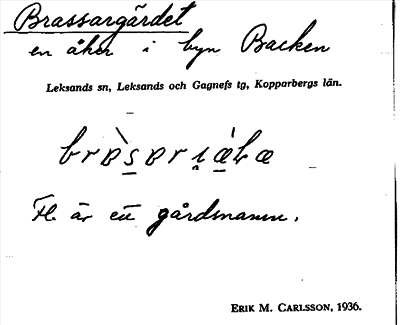 Brassargärdet
en åker i byn Backen
Leksands sn, Leksands och Gagnefs tg, Kopparbergs län.
är ett gårdsnamn.
ERIK M. CARLSSON, 1936.